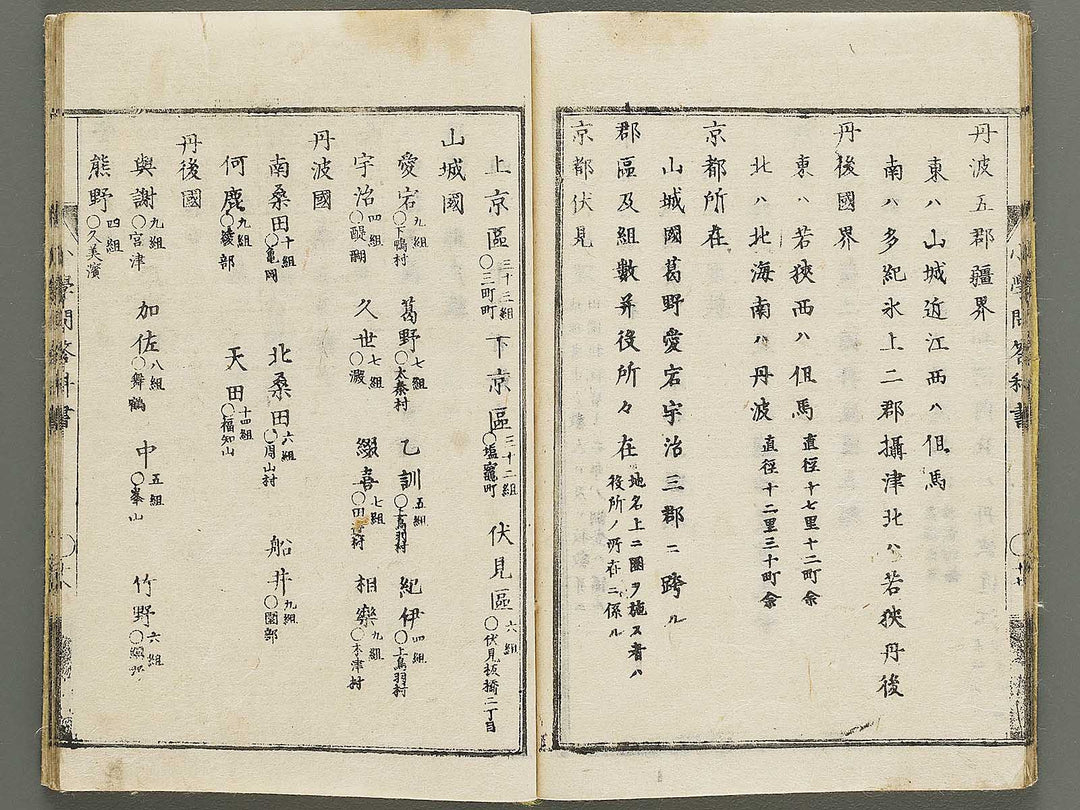 丹波五郡疆界
東ハ山城近江西ハ但馬
南ハ多紀氷上二郡攝津北ハ若狹丹後
丹後國界
東ハ若狹西ハ但馬 直徑十七里十二町余
北ハ北海南ハ丹波 直徑十二里三十町余
京都所在
山城國葛野愛宕宇治三郡ニ跨ル
郡區及組數并役所々在 地名上ニ圏ヲ施ス者ハ
役所ノ所在ニ係ル
京都伏見
小學問答科書
上京區 三十三組 〇三町町 下京區 三十二組 〇塩竈町 伏見區 六組 〇伏見板橋二丁目
山城國
愛宕 九組 〇下鴨村 葛野 七組 〇太秦村 乙訓 五組 〇上鳥羽村 紀伊 四組 〇上鳥羽村
宇治 四組 〇醍醐 久世 七組 〇澱 綴喜 七組 〇田邊村 相樂 九組 〇木津村
丹波國
南桑田 十組 〇亀岡 北桑田 六組 〇周山村 船井 九組 〇園部
何鹿 九組 〇綾部 天田 十四組 〇福知山
丹後國
與謝 九組 〇宮津 加佐 八組 〇舞鶴 中 五組 〇峯山 竹野 六組
熊野 四組 〇久美濱
小學問答科書